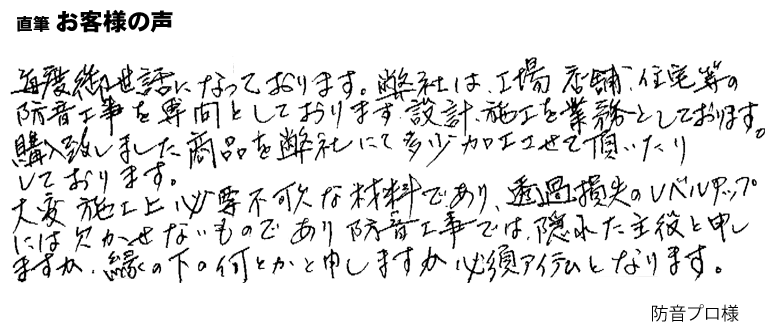 直筆 お客様の声
毎度御世話になっております。弊社は、工場、店舗、住宅等の
防音工事を専門としております。設計、施工を業務としております。
購入致しました商品を弊社にて多少加工させて頂いたり
しております。
大変施工上必要不可欠な材料であり、透過損失のレベルアップ
には欠かせないものであり防音工事では、隠れた主役と申し
ますか、縁の下の何とかと申しますか必須アイテムとなります。
防音プロ様